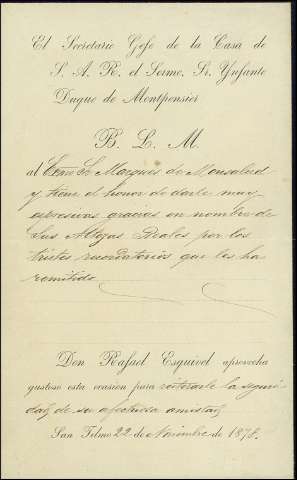 El Secretario Gefe de la Casa de
S. A. R. el Sermo. Sr. Ynfante
Duque de Montpensier
B. L. M.
al Exmo Sr Marques de Monsalud
y tiene el honor de darle muy
espresivas gracias en nombre de
Sus Altezas Reales por los
tristes recordatorios que les ha
remitido
Don Rafael Esquivel aprovecha
gustoso esta ocasion para reiterarle la seguri
dad de su afectuosa amistad
San Telmo 22 de Noviembre de 1878.